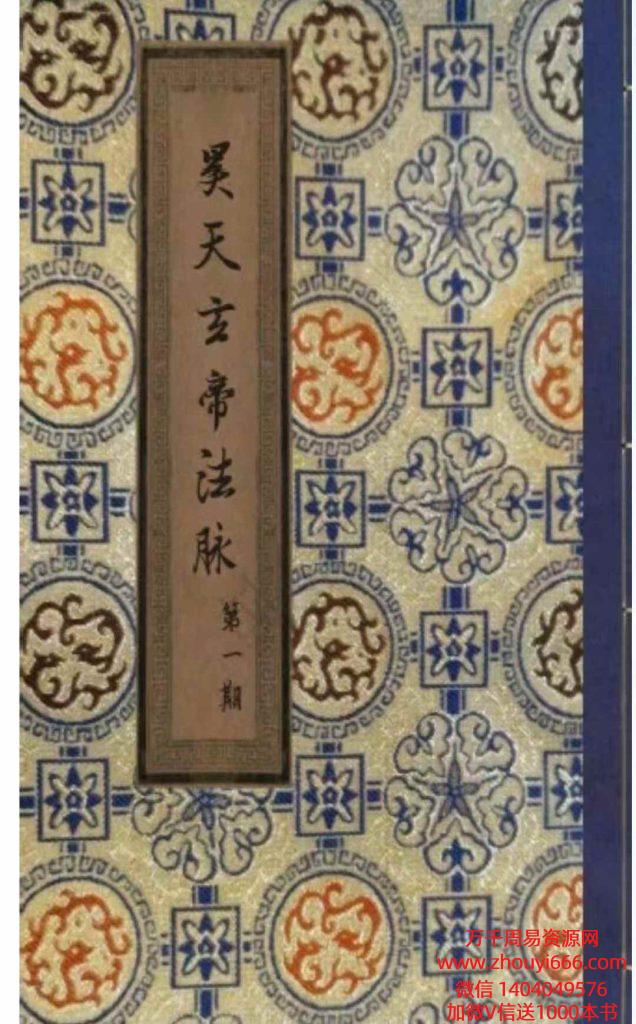 昊天玄帝法脉
第一期
万千周易资源网
www.zhouyi666.com
微信 1404049576
加微V信送1000本书